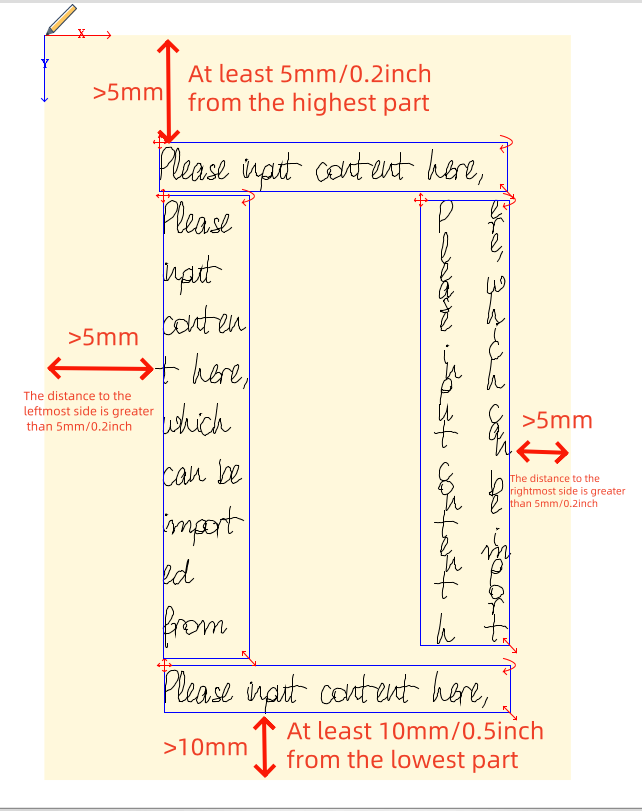 X
Y
>5mm
At least 5mm/0.2inch
from the highest part
Please input content here,
Please
input
conten
t here,
which
can be
import
ed
from
Please input content h
ere, which can be import
>5mm
The distance to the
leftmost side is greater
than 5mm/0.2inch
>5mm
The distance to the
rightmost side is greater
than 5mm/0.2inch
Please input content here,
>10mm
At least 10mm/0.5inch
from the lowest part